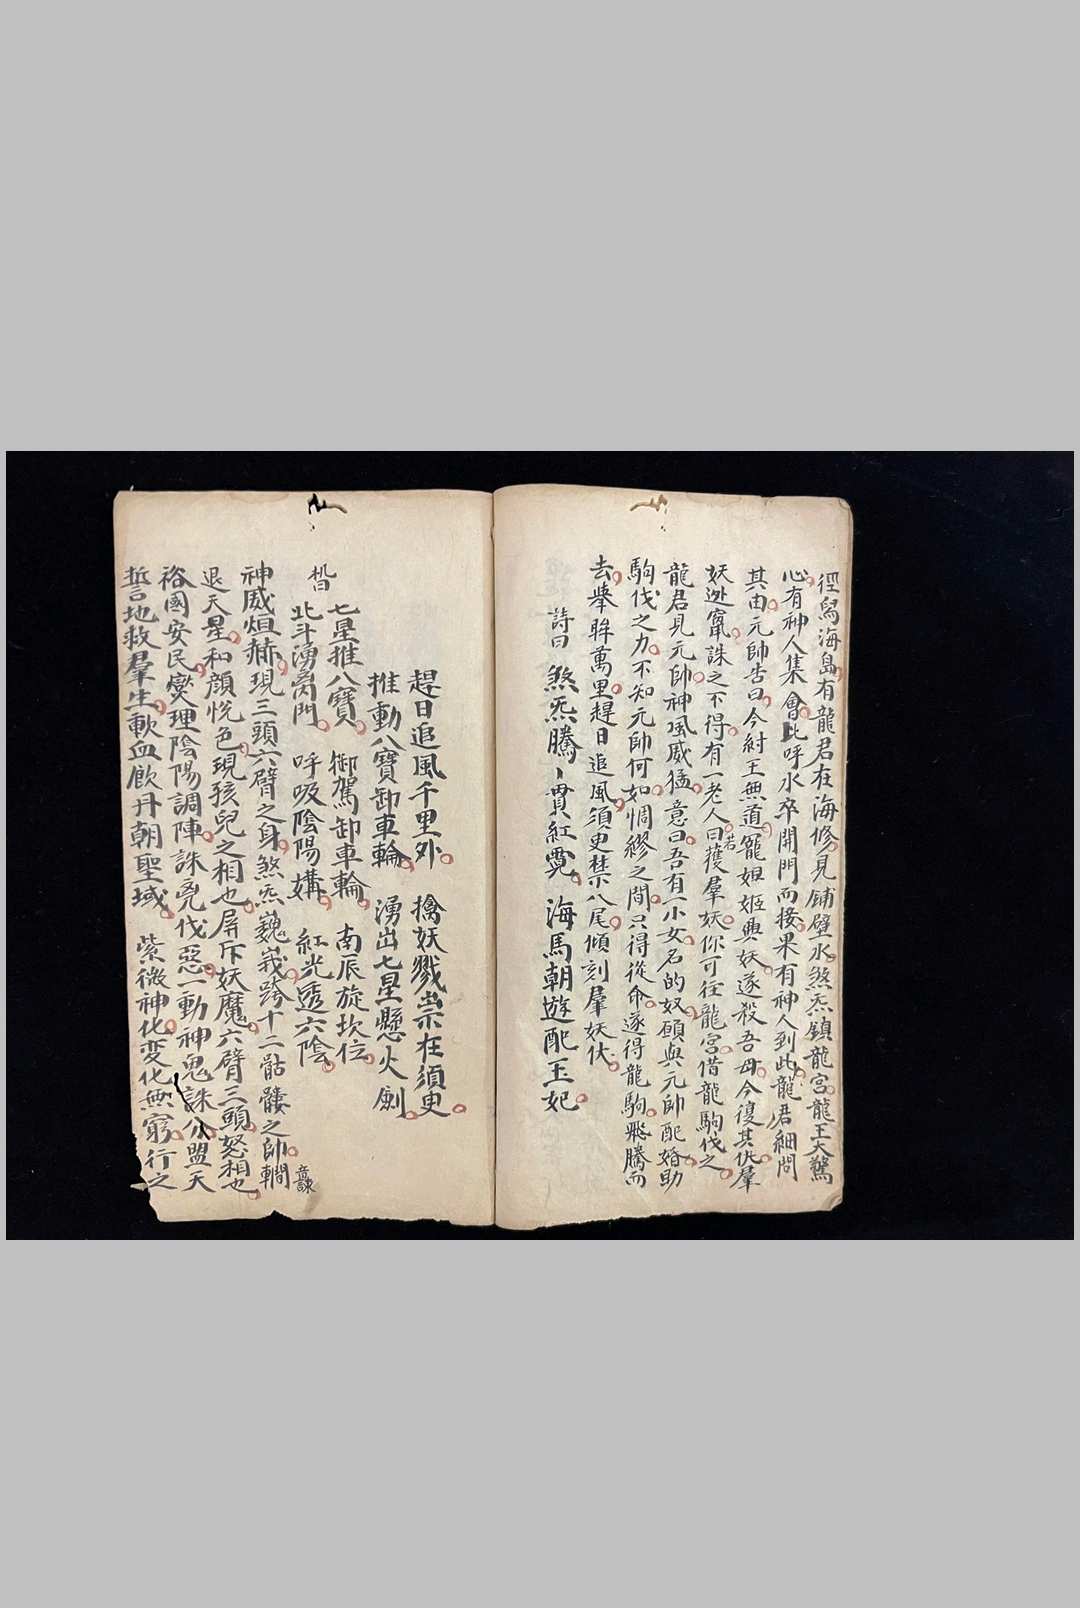 徑歸海島有龍君在海修見鋪壁水煞炁鎮龍宮龍王大驚
心有神人集會此呼水卒開門而接果有神人到此龍君細問
其由元帥告曰今紂王無道寵妲姬興妖遂殺吾母今復其仇羣
妖逊竄誅之不得有一老人曰若獲羣妖你可往龍宮借龍駒伐之
龍君見元帥神風威猛意曰吾有一小女名的奴願與元帥配婚助
駒伐之力不知元帥何如惆繆之間只得從命遂得龍駒飛騰而
去舉眸萬里趕日追風須更禁八尾傾刻羣妖伏
詩曰 煞炁騰丶貫紅霓 海馬朝遊配玉妃
趕日追風千里外 擒妖戮祟在須更
推動八寶卸車輪 湧出七星懸火劍
七星推八寶 御駕卸車輪 南辰旋坎位
北斗湧离門 呼吸陰陽媾 紅光透六陰
神威烜赫現三頭六臂之身煞炁巍峩跨十二骷髏之帥轄
退天星和顏悅色現孩兒之相也屏斥妖魔六臂三頭怒相也
裕國安民燮理陰陽調陣誅兇伐惡一動神鬼誅分盟天
誓地救羣生歃血飲丹朝聖域 紫微神化変化無窮行之